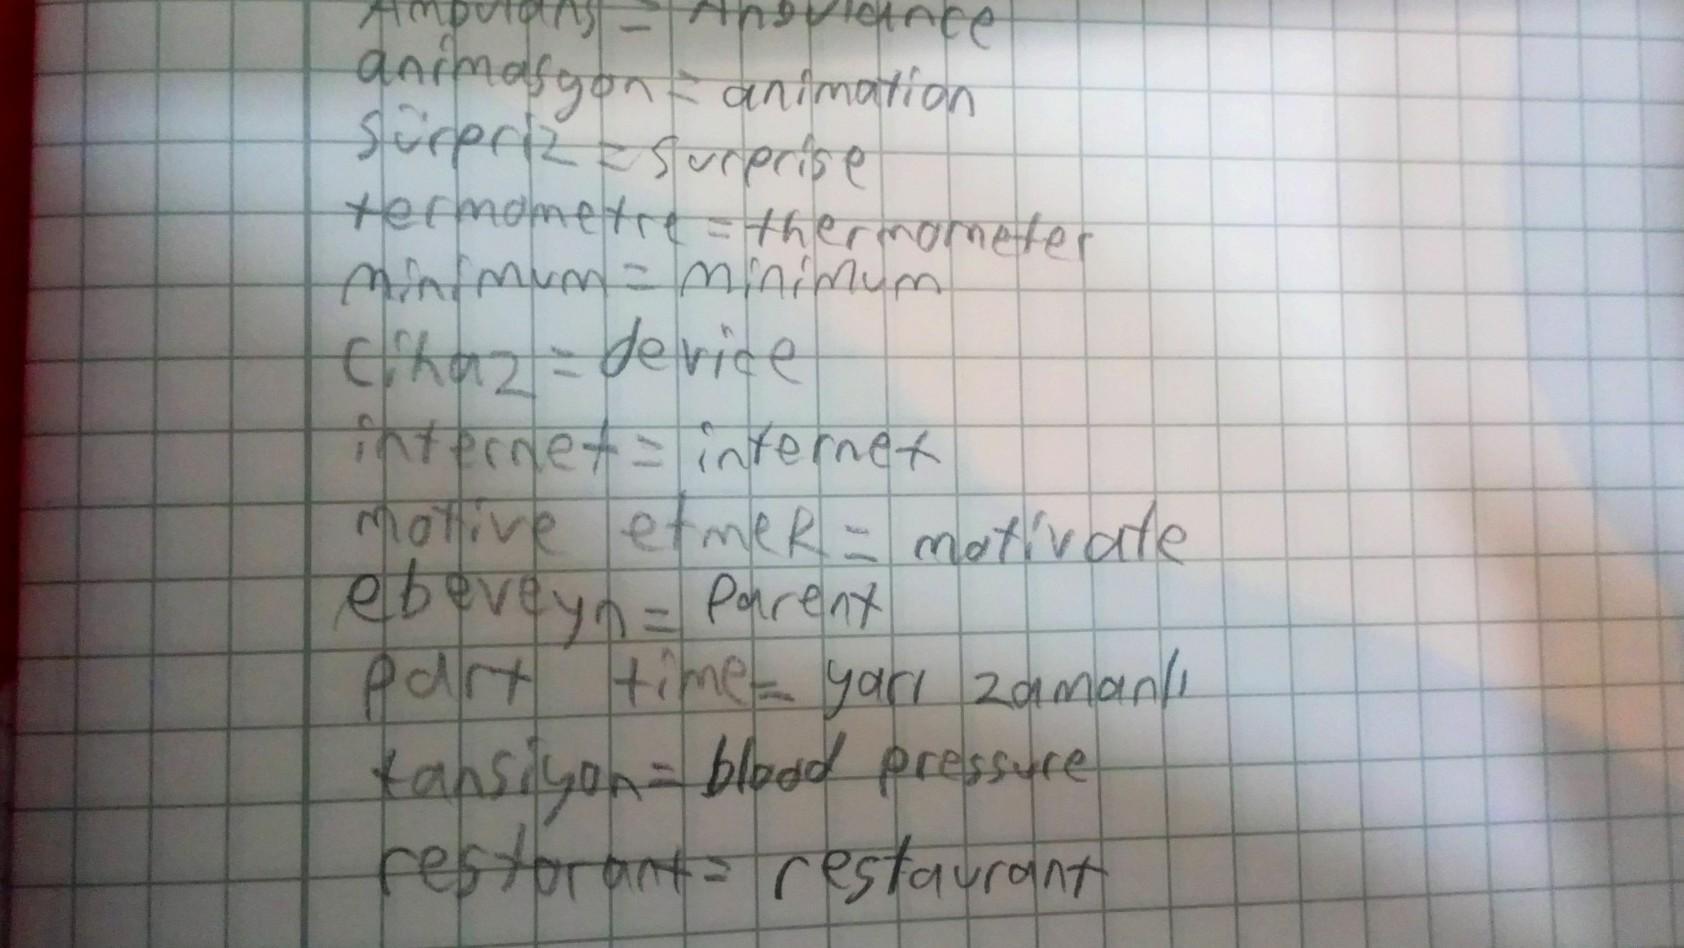 Ambulans = Anbulance
animasyon = animation
sürpriz = surprise
termometre = thermometer
minimum = minimum
cihaz = device
internet = internet
motive etmek = motivate
ebeveyn = parent
part time = yarı zamanlı
tansiyon = blood pressure
restorant = restaurant